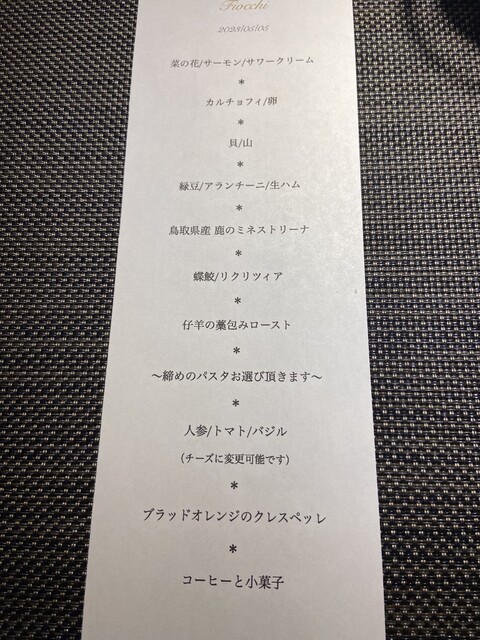 Fiocchi
2023/05/05
菜の花/サーモン/サワークリーム
*
カルチョフィ/卵
*
貝/山
*
緑豆/アランチーニ/生ハム
*
鳥取県産 鹿のミネストリーナ
*
蝶鮫/リクリツィア
*
仔羊の藁包みロースト
*
〜締めのパスタお選び頂きます〜
*
人参/トマト/バジル
（チーズに変更可能です）
*
ブラッドオレンジのクレスペッレ
*
コーヒーと小菓子